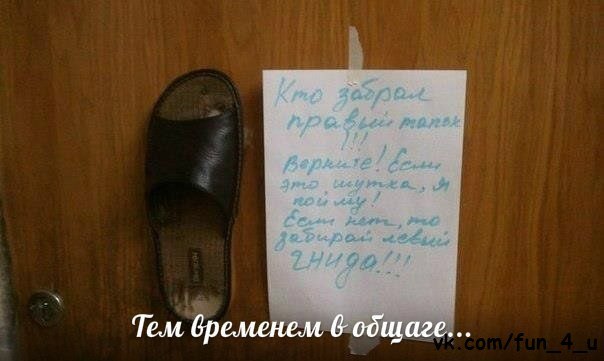 Кто забрал
правый тапок
!!!
Верните! Если
это шутка, я
пойму!
Если нет, то
забирай левый
гнида!!!
Тем временем в общаге...
vk.com/fun_4_u